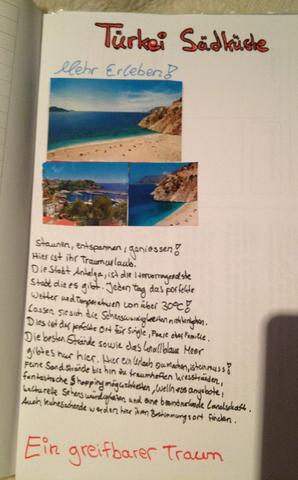 Türkei Südküste
Mehr Erleben!
Staunen, entspannen, geniessen!
Hier ist ihr Traumurlaub.
Die Stadt Antalya, ist die Hervorragendste
Stadt die es gibt. Jeden Tag das perfekte
Wetter und Temperaturen von über 30°C!
Lassen sie sich die Sehenswürdigkeiten nicht entgehen.
Dies ist der perfekte Ort für Single, Paare oder Familie.
Die besten Strände sowie das knallblaue Meer
gibt es nur hier. Hier ein Urlaub zu machen, ist ein muss!
Feine Sandstrände bis hin zu traumhaften Kiesstränden,
fantastische Shoppingmöglichkeiten, Wellnessangebote,
kulturelle Sehenswürdigkeiten und eine beeindruckende Landschaft.
Auch ruhesuchende werden hier ihren Bestimmungsort finden.
Ein greifbarer Traum